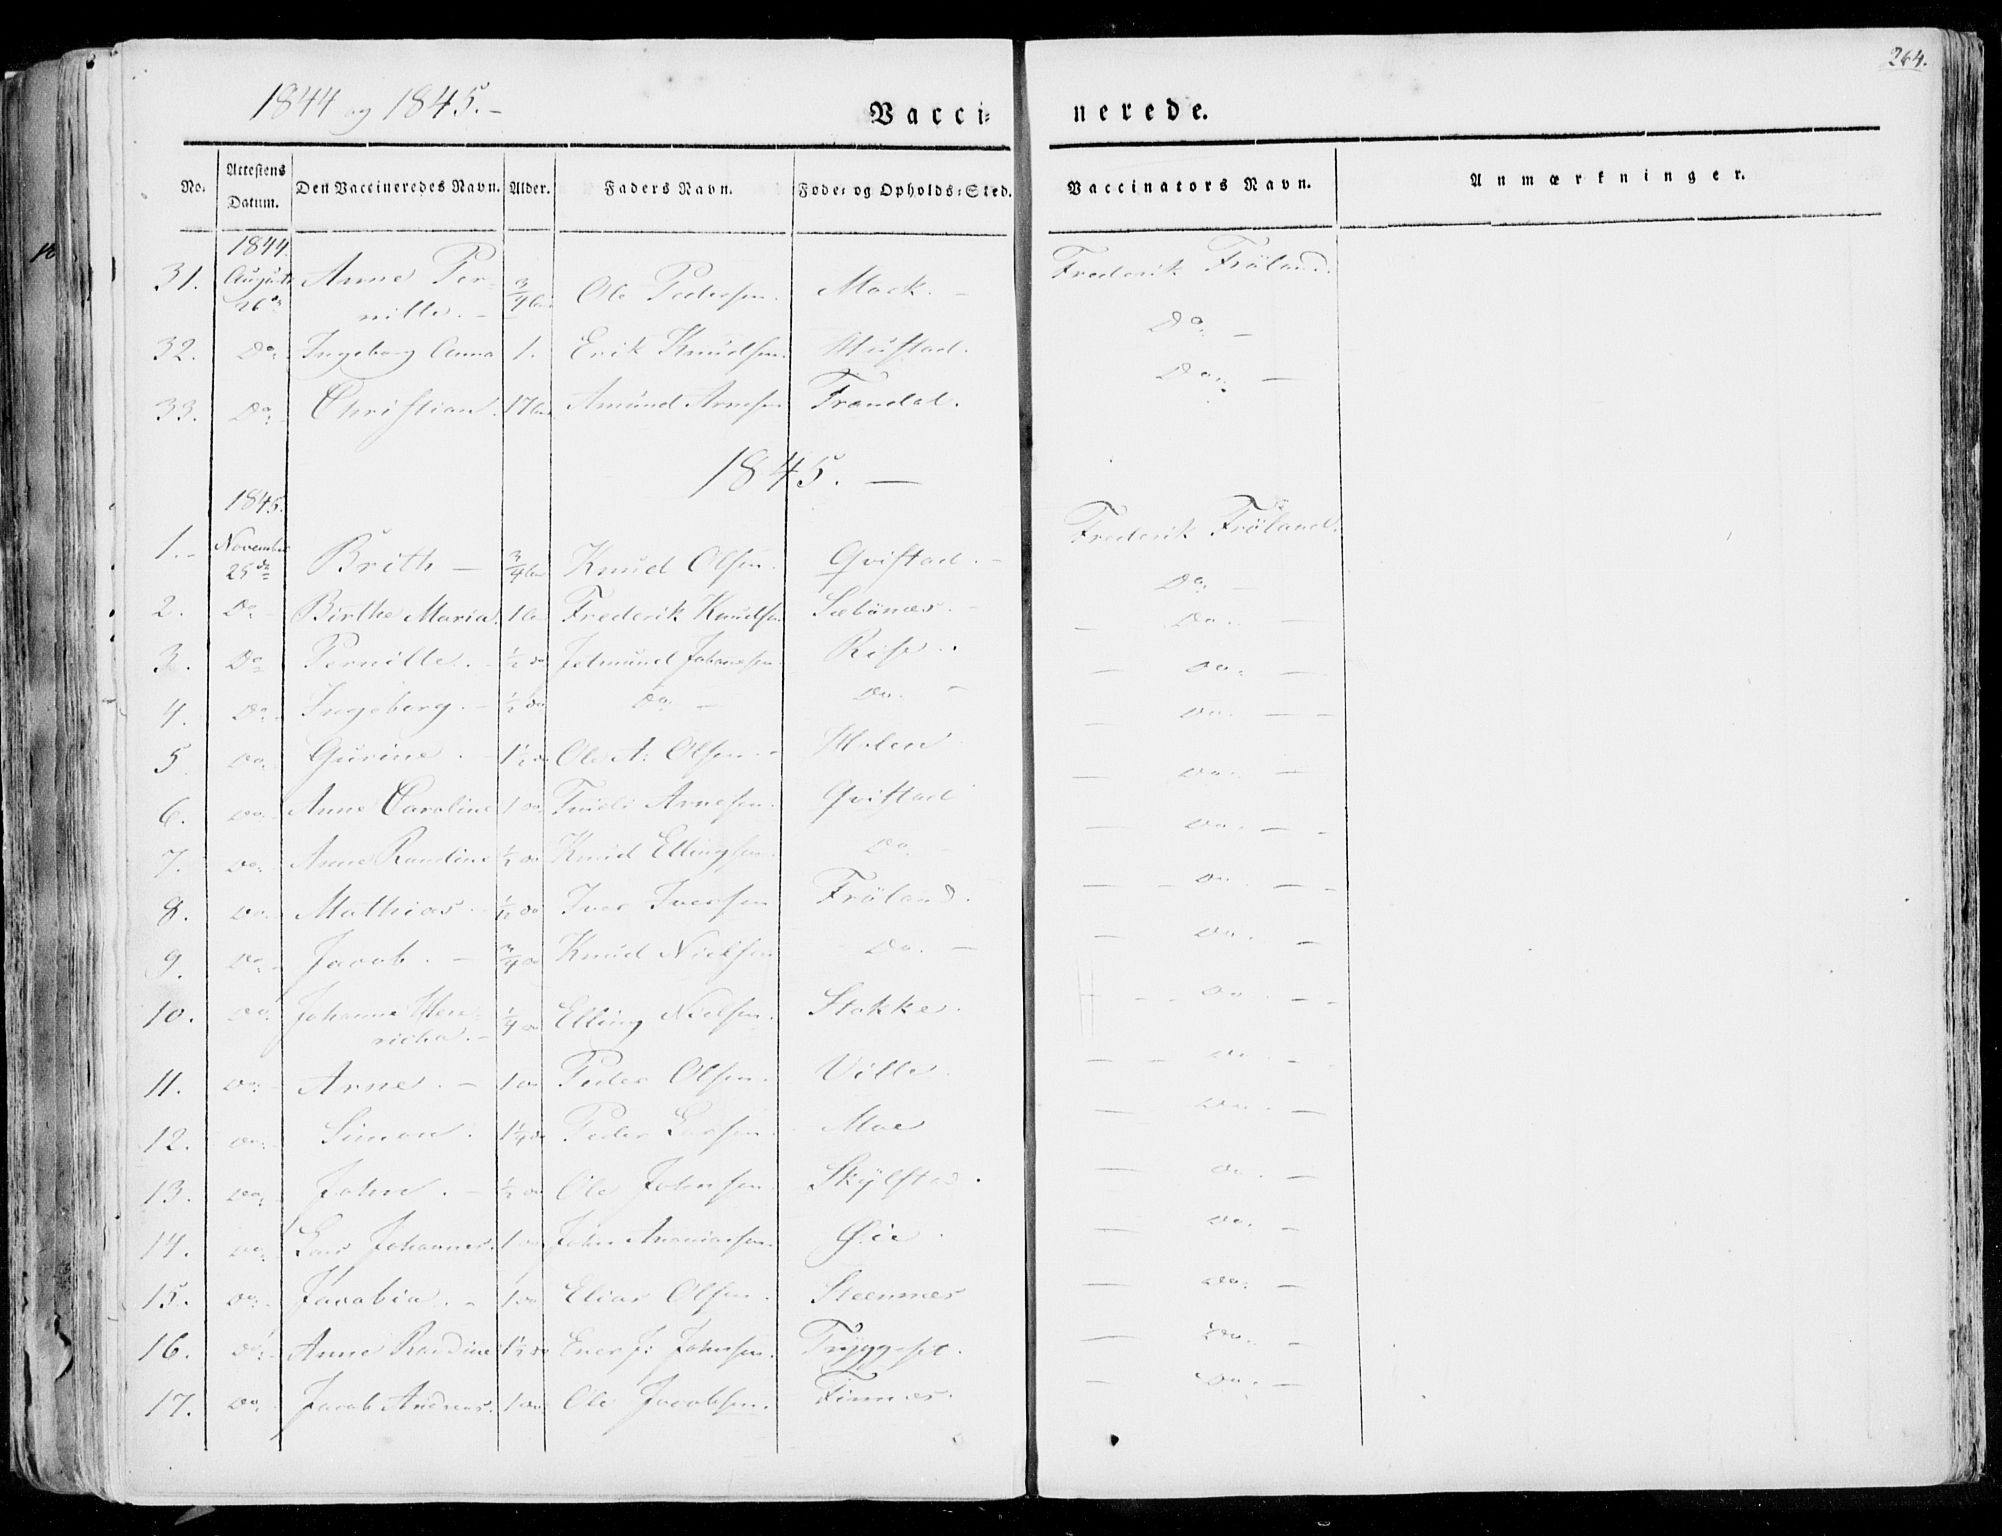 264.
1844 og 1845.-
Vacci= nerede.
No. Attestens Datum. Den Vaccineredes Navn. Alder. Faders Navn. Føde= og Opholds=Sted. Vaccinators Navn. Anmærkninger.
1844
31. August 26de Anne Per-nille. - 3/4 Ole Pedersen. Moek. - Frederik Fröland.
32. Do Ingeborg Anna 1. Erik Knudsen. Mustad. Do -
33. Do Christian. 17 Amund Arnesen Frondal. Do -
1845. -
1845.
1.- November 25de Brith - 3/4 Knud Olsen. Qvistad. - Frederik Fröland.
2. Do - Birthe Maria. 1 Frederik Knudsen Sæbönes. - Do -
3. Do Pernille. - 1/2 do Jetmund Johannesen Rise. - Do. -
4. Do - Ingeborg. - 1/2 do Do. - Do. - - Do. -
5. Do. Gurine. - 1 1/2 do Ole A: Olsen. - Holen - Do. - -
6. Do. Anne Caroline 1 do Arnesen. Qvistad - Do. -
7. Do. Anne Randine 1/2 do Knud Ellingsen. Do. - - Do. - -
8. Do. Mathias - 1/2 do Iver Iversen Fröland. - - Do. - -
9. Do. - Jacob. - 3/4 do Knud Nielsen Do. - - Do. -
10. Do. Johanne Hen-richa. - 1/4 do Elling Nielsen. Stokke. - - - Do. - -
11. Do. - Arne. - 1 do Peder Olsen. Ville. - - Do. - -
12. Do. Simon. 1 1/4 do Peder Larsen. Moe - Do. -
13. Do. John. - 1/2 do Ole Johnsen. Skÿlstad. - Do. -
14. Do. Lars Johannes. 1 do John Ananiasen. Öie. - Do. -
15. Do. Jacobia. - 1 do Elias Olsen. Steennes - Do. -
16. Do. Anne Randine 1 1/2 do J: Johnsen. Tryggeset. - Do. -
17. Do. Jacob Andreas. 1 do Ole Jacobsen. Finnes. - Do. -